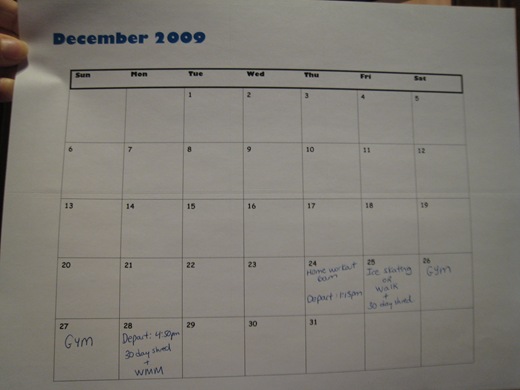 December 2009
Sun Mon Tue Wed Thu Fri Sat
1 2 3 4 5
6 7 8 9 10 11 12
13 14 15 16 17 18 19
20 21 22 23 24 25 26
Home workout
room
Depart: 1:15pm
Ice skating
or
walk
+
30 day shred
GYM
27 28 29 30 31
GYM
Depart: 4:50pm
30 day shred
+
WMM